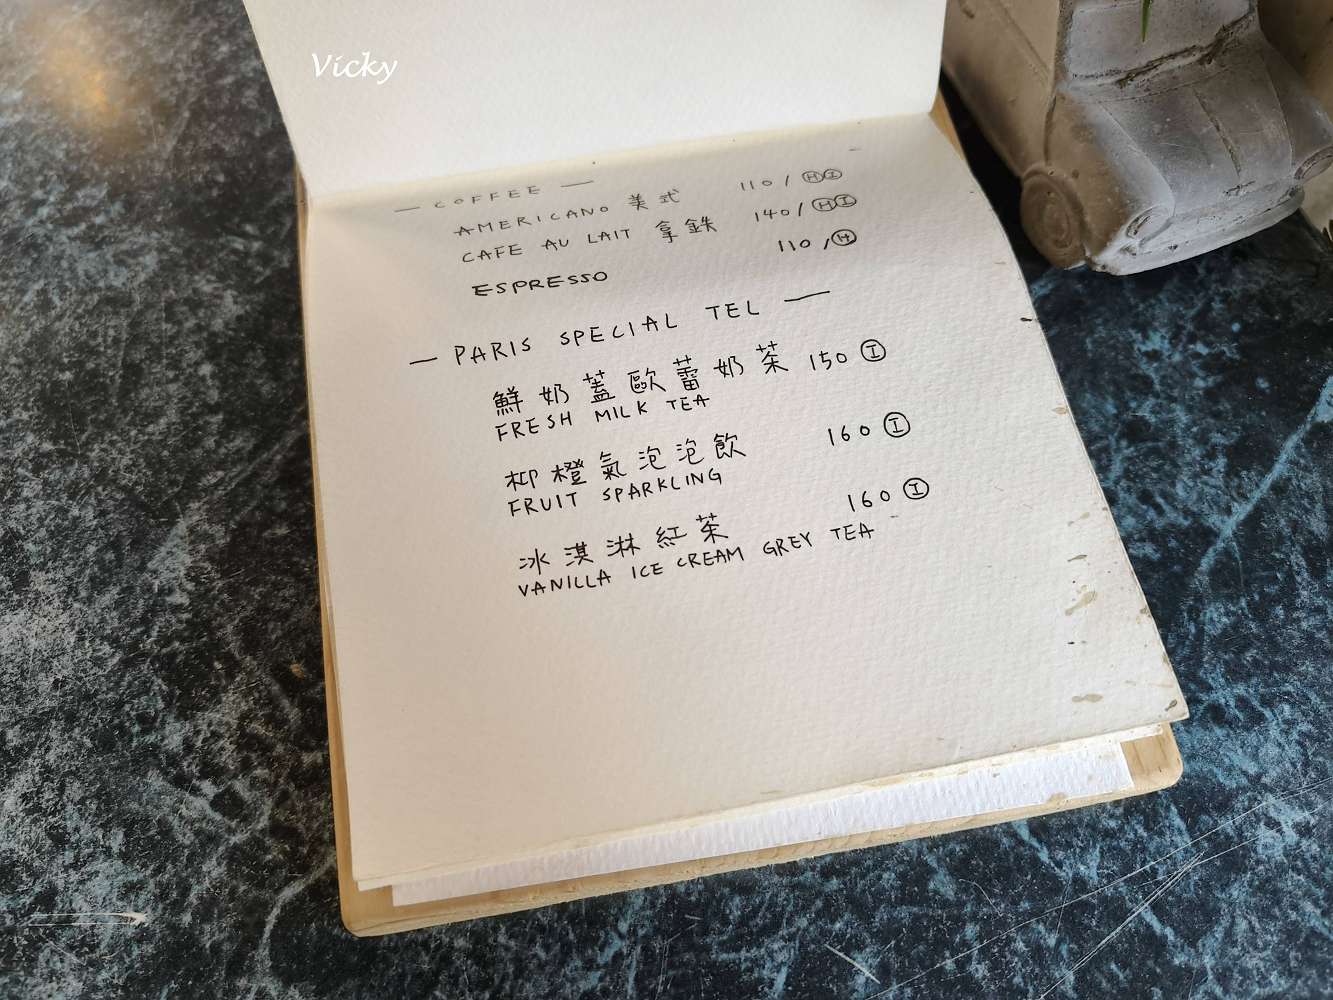 Vicky
— COFFEE —
AMERICANO 美式 110 / Ⓗ Ⓘ
CAFE AU LAIT 拿鉄 140 / Ⓗ Ⓘ
ESPRESSO 110 / Ⓗ
— PARIS SPECIAL TEL —
鮮奶蓋歐蕾奶茶 150 Ⓘ
FRESH MILK TEA
柳橙氣泡泡飲 160 Ⓘ
FRUIT SPARKLING
冰淇淋紅茶 160 Ⓘ
VANILLA ICE CREAM GREY TEA